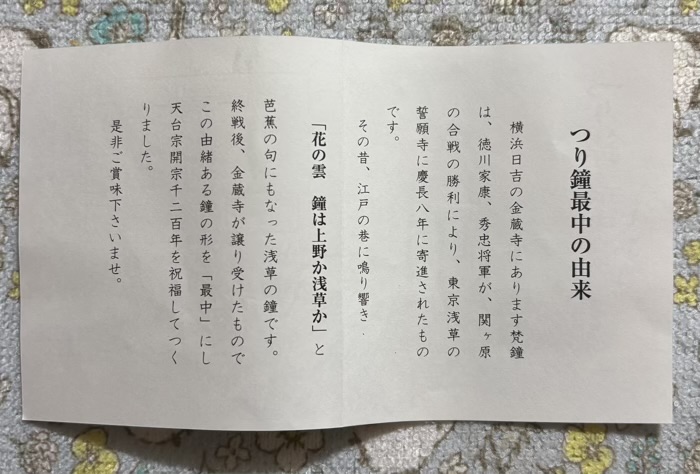 つり鐘最中の由来
横浜日吉の金蔵寺にあります梵鐘
は、徳川家康、秀忠将軍が、関ヶ原
の合戦の勝利により、東京浅草の
誓願寺に慶長八年に寄進されたもの
です。
その昔、江戸の巷に鳴り響き.
「花の雲　鐘は上野か浅草か」と
芭蕉の句にもなった浅草の鐘です。
終戦後、金蔵寺が譲り受けたもので
この由緒ある鐘の形を「最中」にし
天台宗開宗千二百年を祝福してつく
りました。
是非ご賞味下さいませ。